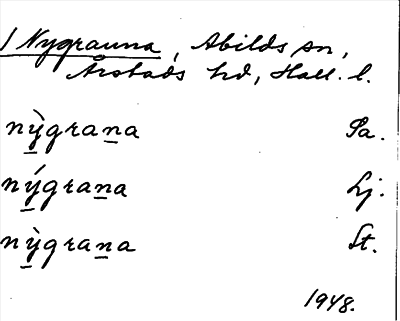 / Nygranna, Abilds sn,
Årstads hd, Hall. l.
nỳgrana Sa.
nýgrana Lj.
nỳgrana St.
1948.